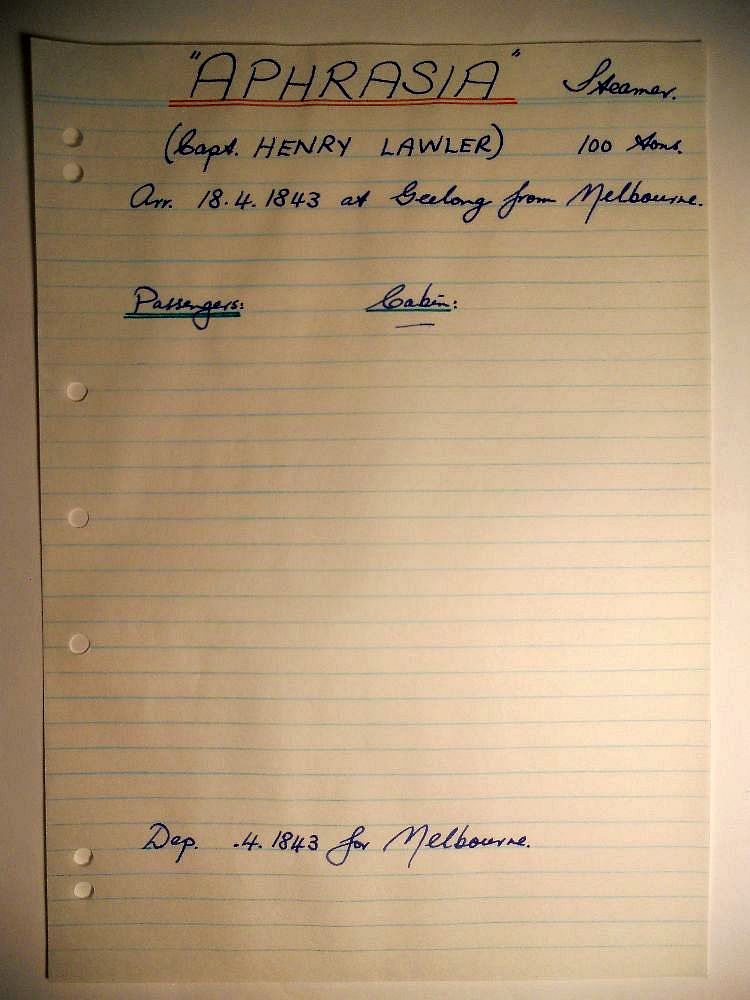 "APHRASIA" Steamer.
(Capt. HENRY LAWLER) 100 tons.
Arr. 18.4.1843 at Geelong from Melbourne.
Passengers: Cabin:
Dep. .4.1843 for Melbourne.